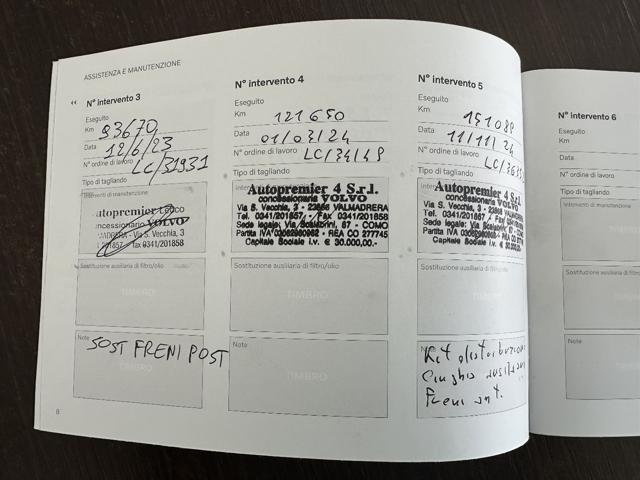 ASSISTENZA E MANUTENZIONE
N° intervento 3
Eseguito
Km 93670
Data 12/6/23
N° ordine di lavoro LC/31931
Tipo di tagliando
Interventi di manutenzione
Autopremier Lecco
concessionaria VOLVO
VALMADRERA - Via S. Vecchia, 3
201857 - fax 0341/201858
Sostituzione ausiliaria di filtro/olio
TIMBRO
Note
SOST FRENI POST
TIMBRO
8
N° intervento 4
Eseguito
Km 121650
Data 01/03/24
N° ordine di lavoro LC/34149
Tipo di tagliando
Autopremier 4 S.r.l.
concessionaria VOLVO
Via S. Vecchia, 3 - 23868 VALMADRERA
Tel. 0341/201857 - Fax 0341/201858
Sede legale: Via Scalabrini, 67 - COMO
REA CO 277745
Capitale Sociale i.v. € 30.000,00.-
Sostituzione ausiliaria di filtro/olio
TIMBRO
Note
TIMBRO
N° intervento 5
Eseguito
Km 151089
Data 11/11/24
N° ordine di lavoro
Tipo di tagliando
Autopremier 4 S.r.l
concessionaria VOLVO
Via S. Vecchia, 3 - 23868 VALMADRERA
Tel. 0341/201857 - Fax 0341/201858
COMO
REA CO 277745
Capitale Sociale i.v. € 30.000,00.-
Sostituzione ausiliaria di filtro/olio
TIMBRO
Note
Kit distribuzione
Cinghia
Freni ant.
N° intervento 6
Eseguito
Km
Data
N° ordine di lavoro
Tipo di tagliando
Interventi di manutenzione
Sostituzione ausiliaria
Note